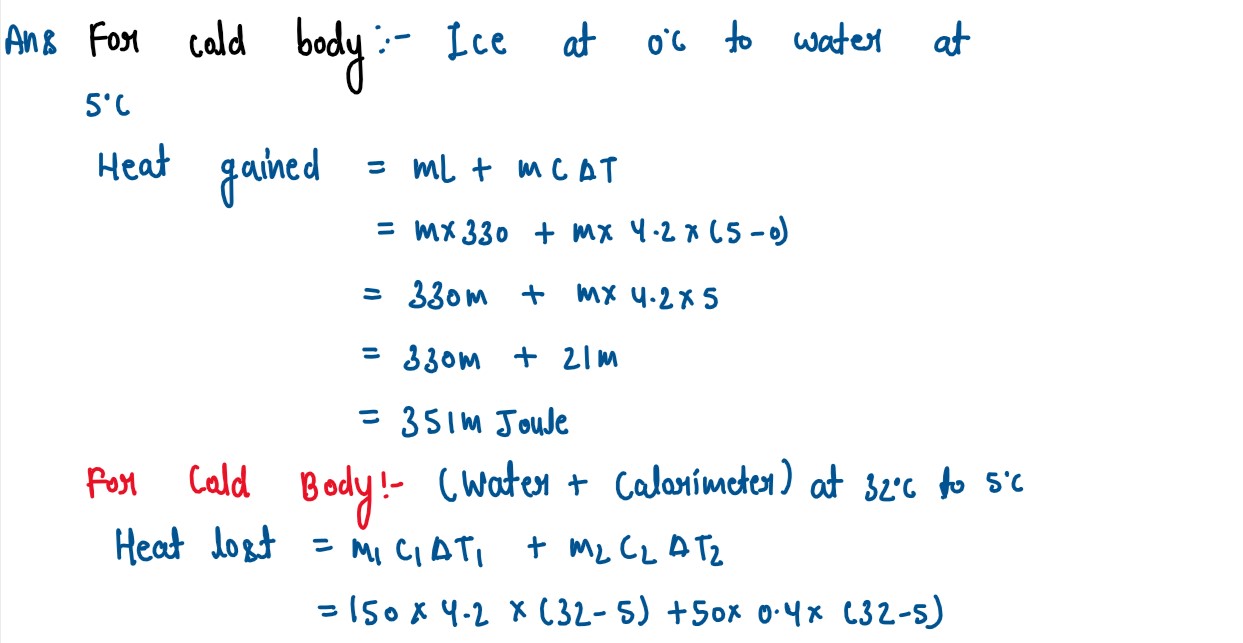 Ans For cold body :- Ice at 0°C to water at
5°C
Heat gained = mL + m C ΔT
= m x 330 + m x 4.2 x (5-0)
= 330m + m x 4.2 x 5
= 330m + 21m
= 351m Joule
For Cold Body :- (Water + Calorimeter) at 32°C to 5°C
Heat lost = m₁ C₁ ΔT₁ + m₂ C₂ ΔT₂
= 150 x 4.2 x (32-5) + 50 x 0.4 x (32-5)